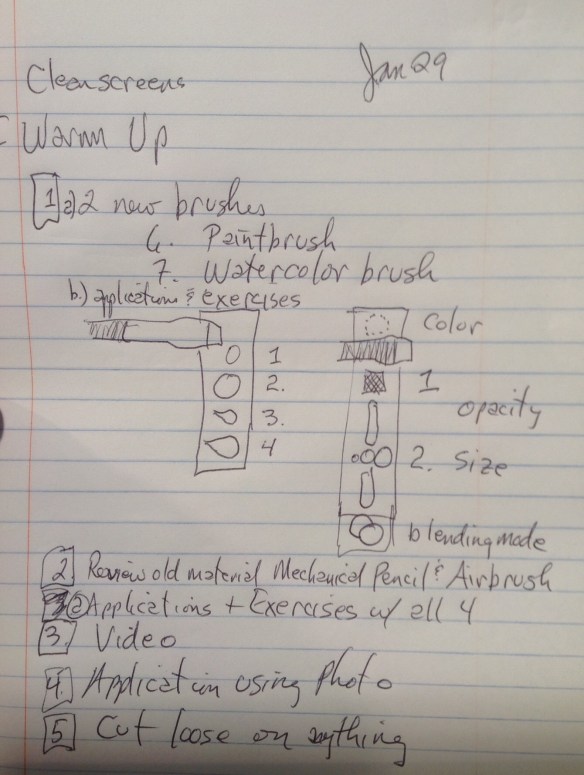 Jan 29
Cleanscreens
Warm Up
1 a) 2 new brushes
6. Paintbrush
7. Watercolor brush
b.) applications & exercises
color
1
2.
3.
4
1
opacity
2. Size
blending mode
2 Review old material Mechanical Pencil & Airbrush
a Applications + Exercises w/ all 4
3. Video
4. Application using Photo
5 Cut loose on anything